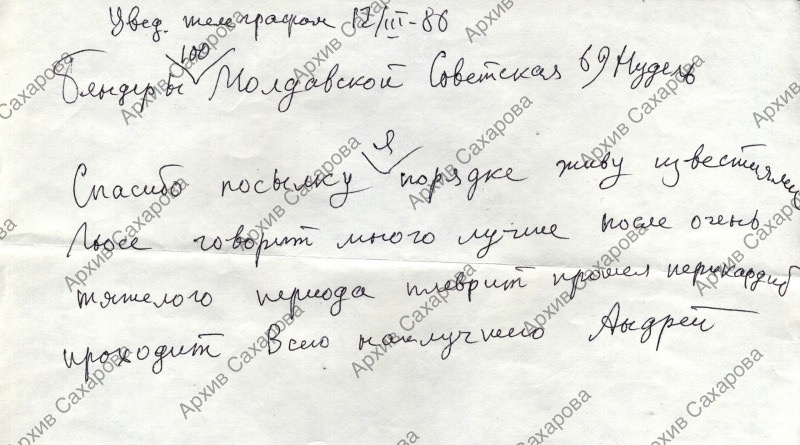 Увед. телеграфом 12/III-86
100
Бендеры Молдавской Советская 69 Нудель
Я
Спасибо посылку порядке живу известиями
Люсе говорит много лучше после очень
тяжелого периода плеврит прошел перикардит
проходит Всего наилучшего Андрей